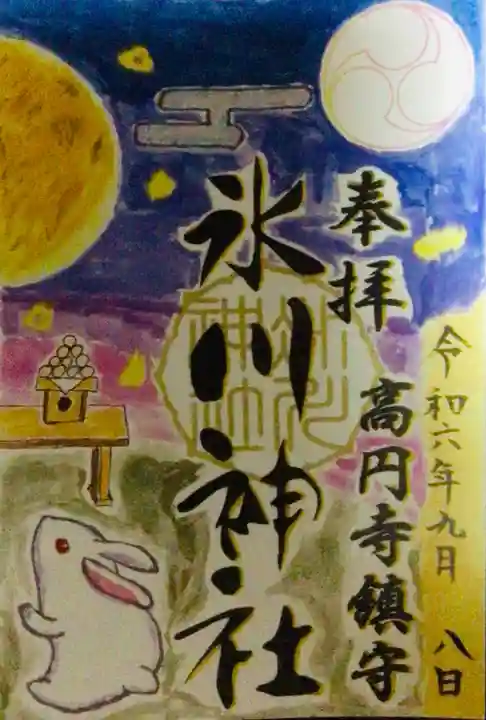 奉拝
高円寺鎮守
氷川神社
氷川
神社
令和六年九月
八日